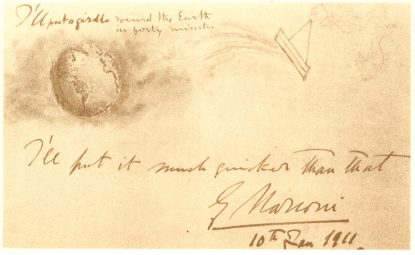 I'll put a girdle round the Earth
in forty minutes
I'll put it much quicker than that
G Marconi
10th Jan 1911.